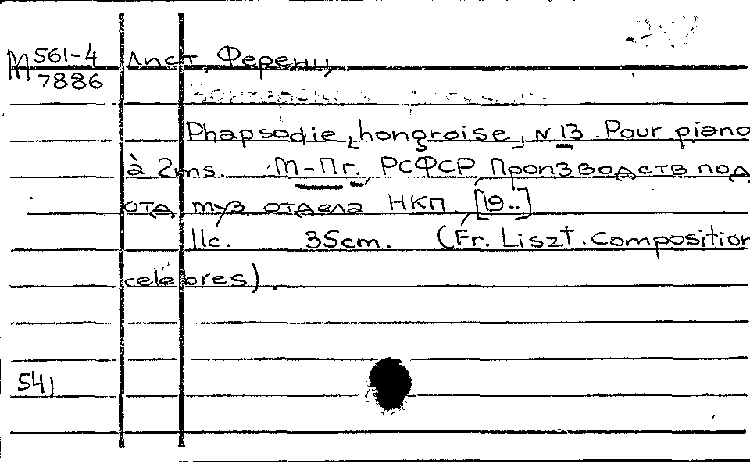 М 561-4
7886
Лист, Ференц
Рhapsodie hongroise N 13 Pour piano
à 2ms. М-Пг. РСФСР Производств под
отд муз отдела НКП [19..]
11с. 35cm. (Fr. Liszt. Composition
celèbres).
541